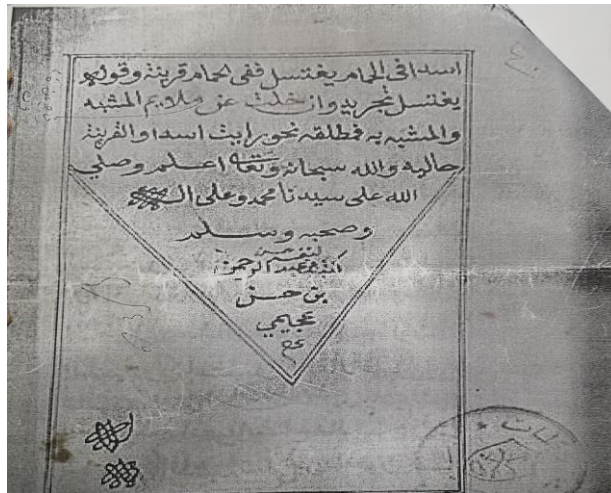 اسدا فى الحمام يغتسل ففى الحمام قرينة وقوله
يغتسل تجريد وان خلت عن ملايم المشبه
والمشبه به فمطلقه نحو رايت اسدا والقرينة
حاليه والله سبحانه وتعالى اعلم وصلي
الله على سيدنا محمد وعلى اله
وصحبه وسلم
عبد الرحمن
بن حسن
عجيمي